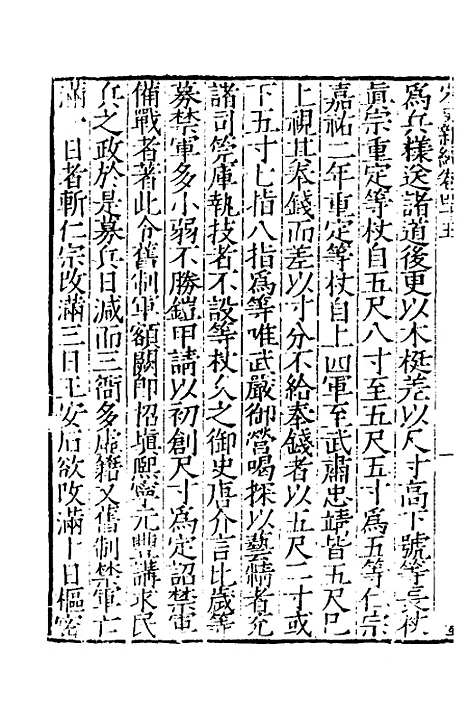 宋史新編卷四十五
為兵樣送諸道後更以木梃差以尺寸高下號等長杖
真宗重定等杖自五尺八寸至五尺五寸為五等仁宗
嘉祐二年重定等杖自上四軍至武肅忠靖皆五尺巳
上視其奉錢而差以寸分不給奉錢者以五尺二寸或
下五寸七指八指為等唯武嚴御營喝探以藝精者充
諸司筦庫執技者不設等杖久之御史唐介言比歲等
募禁軍多小弱不勝鎧甲請以初創尺寸為定詔禁軍
備戰者著此令舊制軍額闕即招塡熙寧元豐講求民
兵之政於是募兵日減而三衙多虛籍又舊制禁軍亡
滿一日者斬仁宗改滿三日王安石欲改滿十日樞密